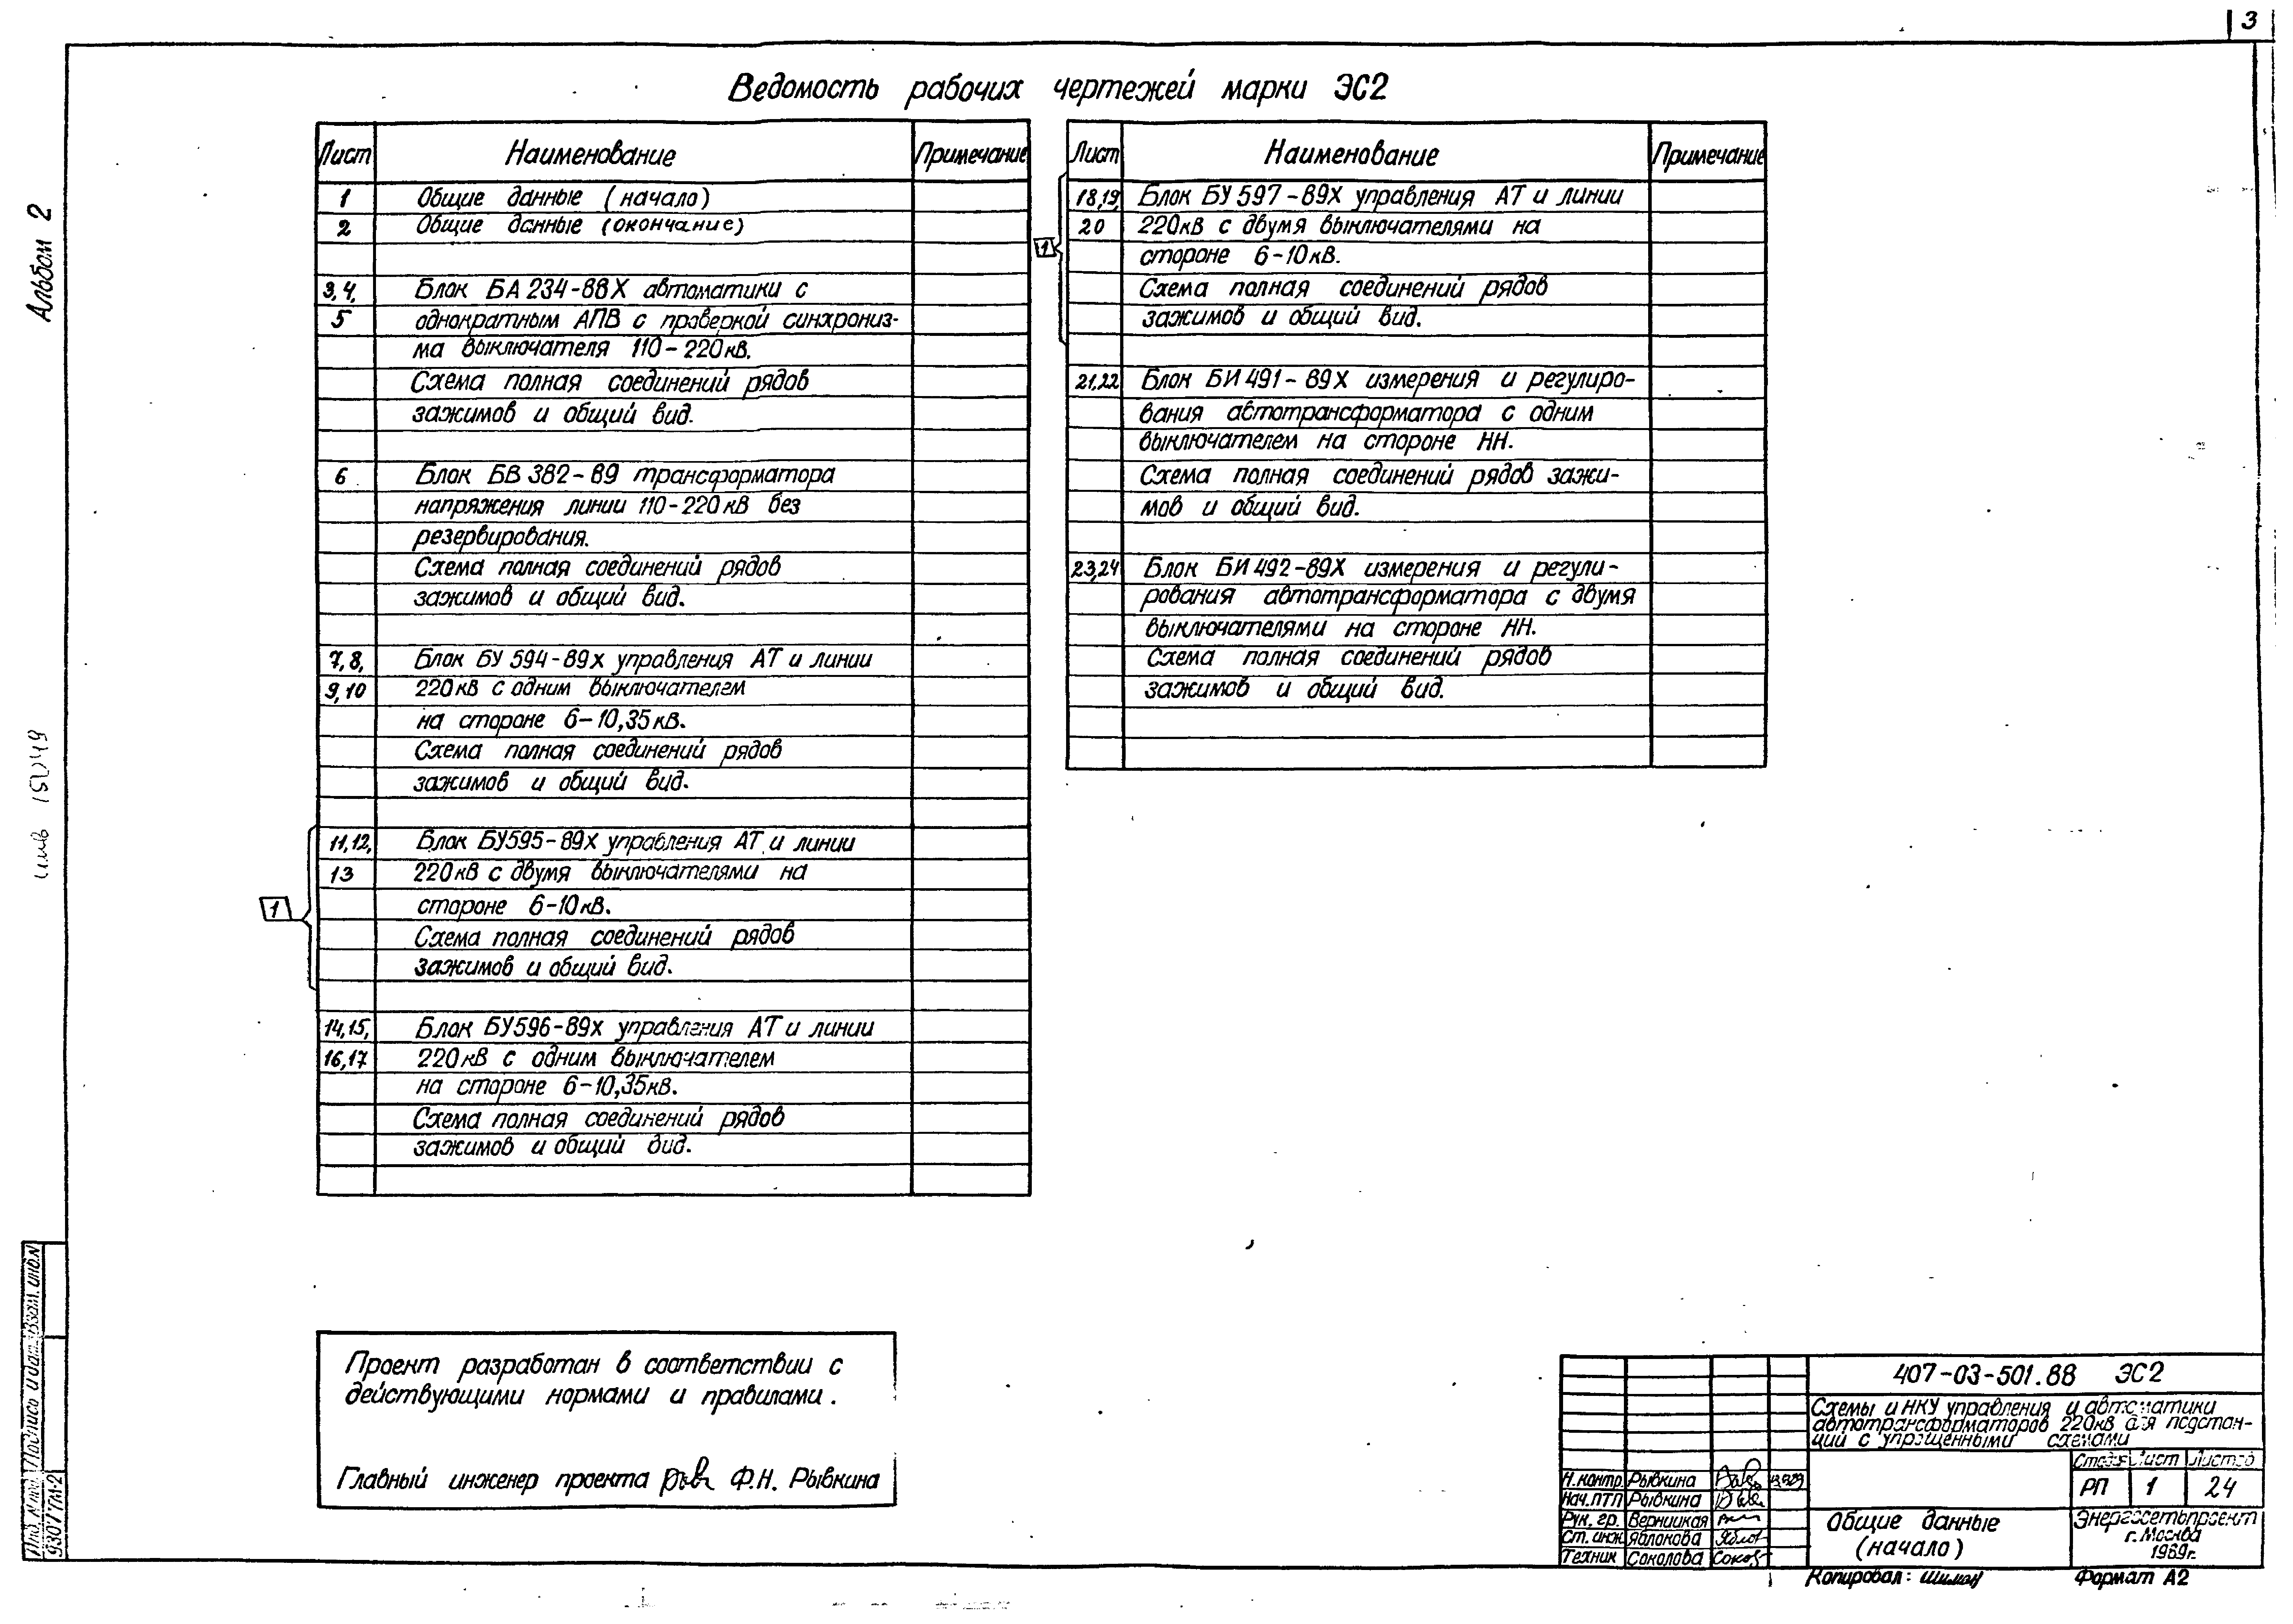 3
Альбом 2
Ведомость рабочих чертежей марки ЭС2
Лист Наименование Примечание
1 Общие данные (начало)
2 Общие данные (окончание)
3,4, Блок БА 234-88Х автоматики с
5 однократным АПВ с проверкой синхрониз-
ма выключателя 110-220кв.
Схема полная соединений рядов
зажимов и общий вид.
6 Блок БВ 382-89 трансформатора
напряжения линии 110-220кВ без
резервирования.
Схема полная соединений рядов
зажимов и общий вид.
7,8, Блок БУ 594-89х управления АТ и линии
9,10 220кВ с одним выключателем
на стороне 6-10,35кВ.
Схема полная соединений рядов
зажимов и общий вид.
1
11,12, Блок БУ595-89х управления АТ и линии
13 220кВ с двумя выключателями на
стороне 6-10кВ.
Схема полная соединений рядов
зажимов и общий вид.
14,15, Блок БУ596-89х управления АТ и линии
16,17 220кВ с одним выключателем
на стороне 6-10,35кВ.
Схема полная соединений рядов
зажимов и общий вид.
Лист Наименование Примечание
1
18,19, Блок БУ 597-89Х управления АТ и линии
20 220кВ с двумя выключателями на
стороне 6-10кВ.
Схема полная соединений рядов
зажимов и общий вид.
21,22 Блок БИ 491-89Х измерения и регулиро-
вания автотрансформатора с одним
выключателем на стороне НН.
Схема полная соединений рядов зажи-
мов и общий вид.
23,24 Блок БИ 492-89Х измерения и регули-
рования автотрансформатора с двумя
выключателями на стороне НН.
Схема полная соединений рядов
зажимов и общий вид.
Проект разработан в соответствии с
действующими нормами и правилами.
Главный инженер проекта Ф.Н. Рывкина
407-03-501.88 ЭС2
Схемы и НКУ управления и автоматики
автотрансформаторов 220кВ для подстан-
ций с упрощенными схемами
Стадия Лист Листов
РП 1 24
Н.контр. Рывкина
Нач.ПТП Рывкина
Рук. гр. Верницкая
Ст. инж. Яблокова
Техник Соколова
Общие данные
(начало)
Энергосетьпроект
г. Москва
1989г.
Копировал: Формат А2
Инв. N подл. Подпись и дата Взам. инв.N
9307ТМ-2